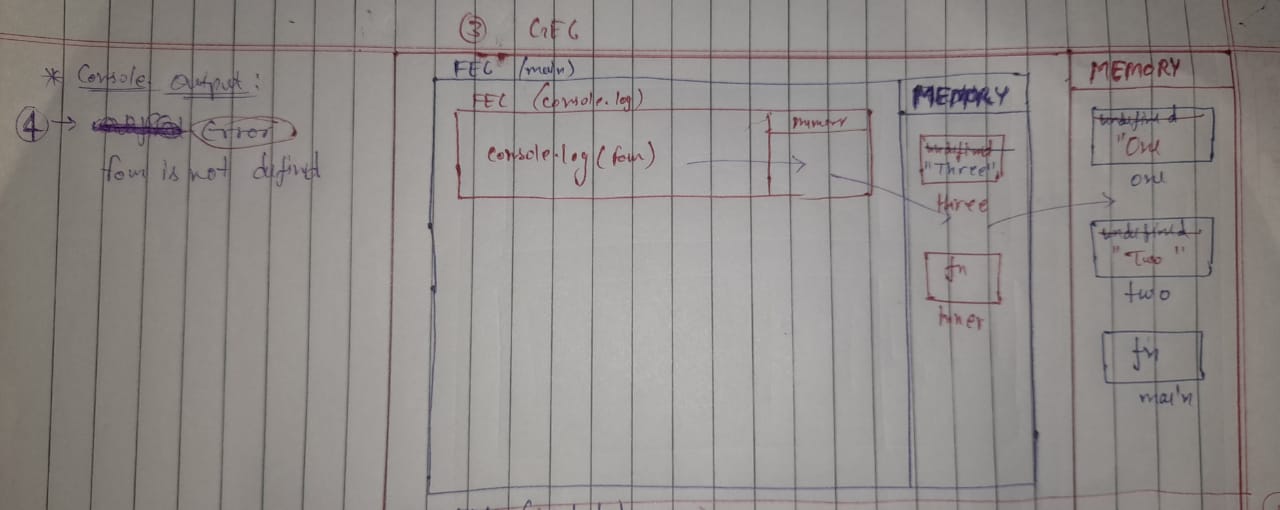 ③ GEC
* Console Output :
④ → Error
four is not defined
FEC (main)
FEC (console.log)
console.log(four)
MEMORY
undefined
"Three"
three
fn
inner
MEMORY
undefined
"One
one
undefined
"Two"
two
fn
main